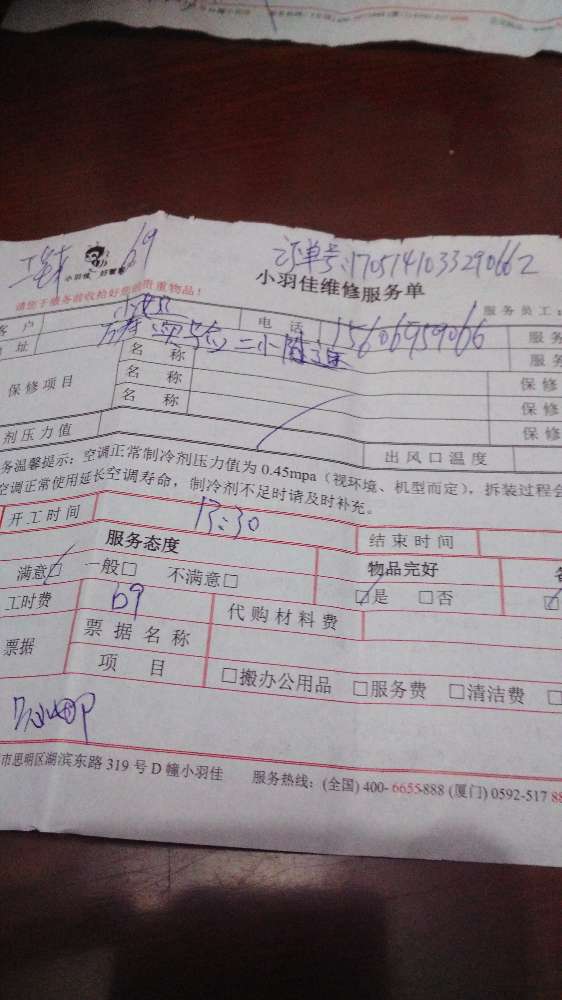 69 订单号:170514103329066２
小羽佳 好管家
小羽佳维修服务单
请您于服务前收拾好您的贵重物品!
服务员工:
客 户 电 话 15606959066 服务
址 二小 服务
保修项目 名 称 保修
名 称 保修
名 称 保修
剂压力值 出风口温度
务温馨提示:空调正常制冷剂压力值为 0.45mpa(视环境、机型而定),拆装过程会
空调正常使用延长空调寿命,制冷剂不足时请及时补充。
开工时间 13:30 结束时间
服务态度 物品完好
满意□ 一般□ 不满意□ □是 □否
工时费 69 代购材料费
票据 票据名称
项 目 □搬办公用品 □服务费 □清洁费
市思明区湖滨东路 319 号 D 幢小羽佳 服务热线:(全国) 400-6655-888 (厦门) 0592-517 88